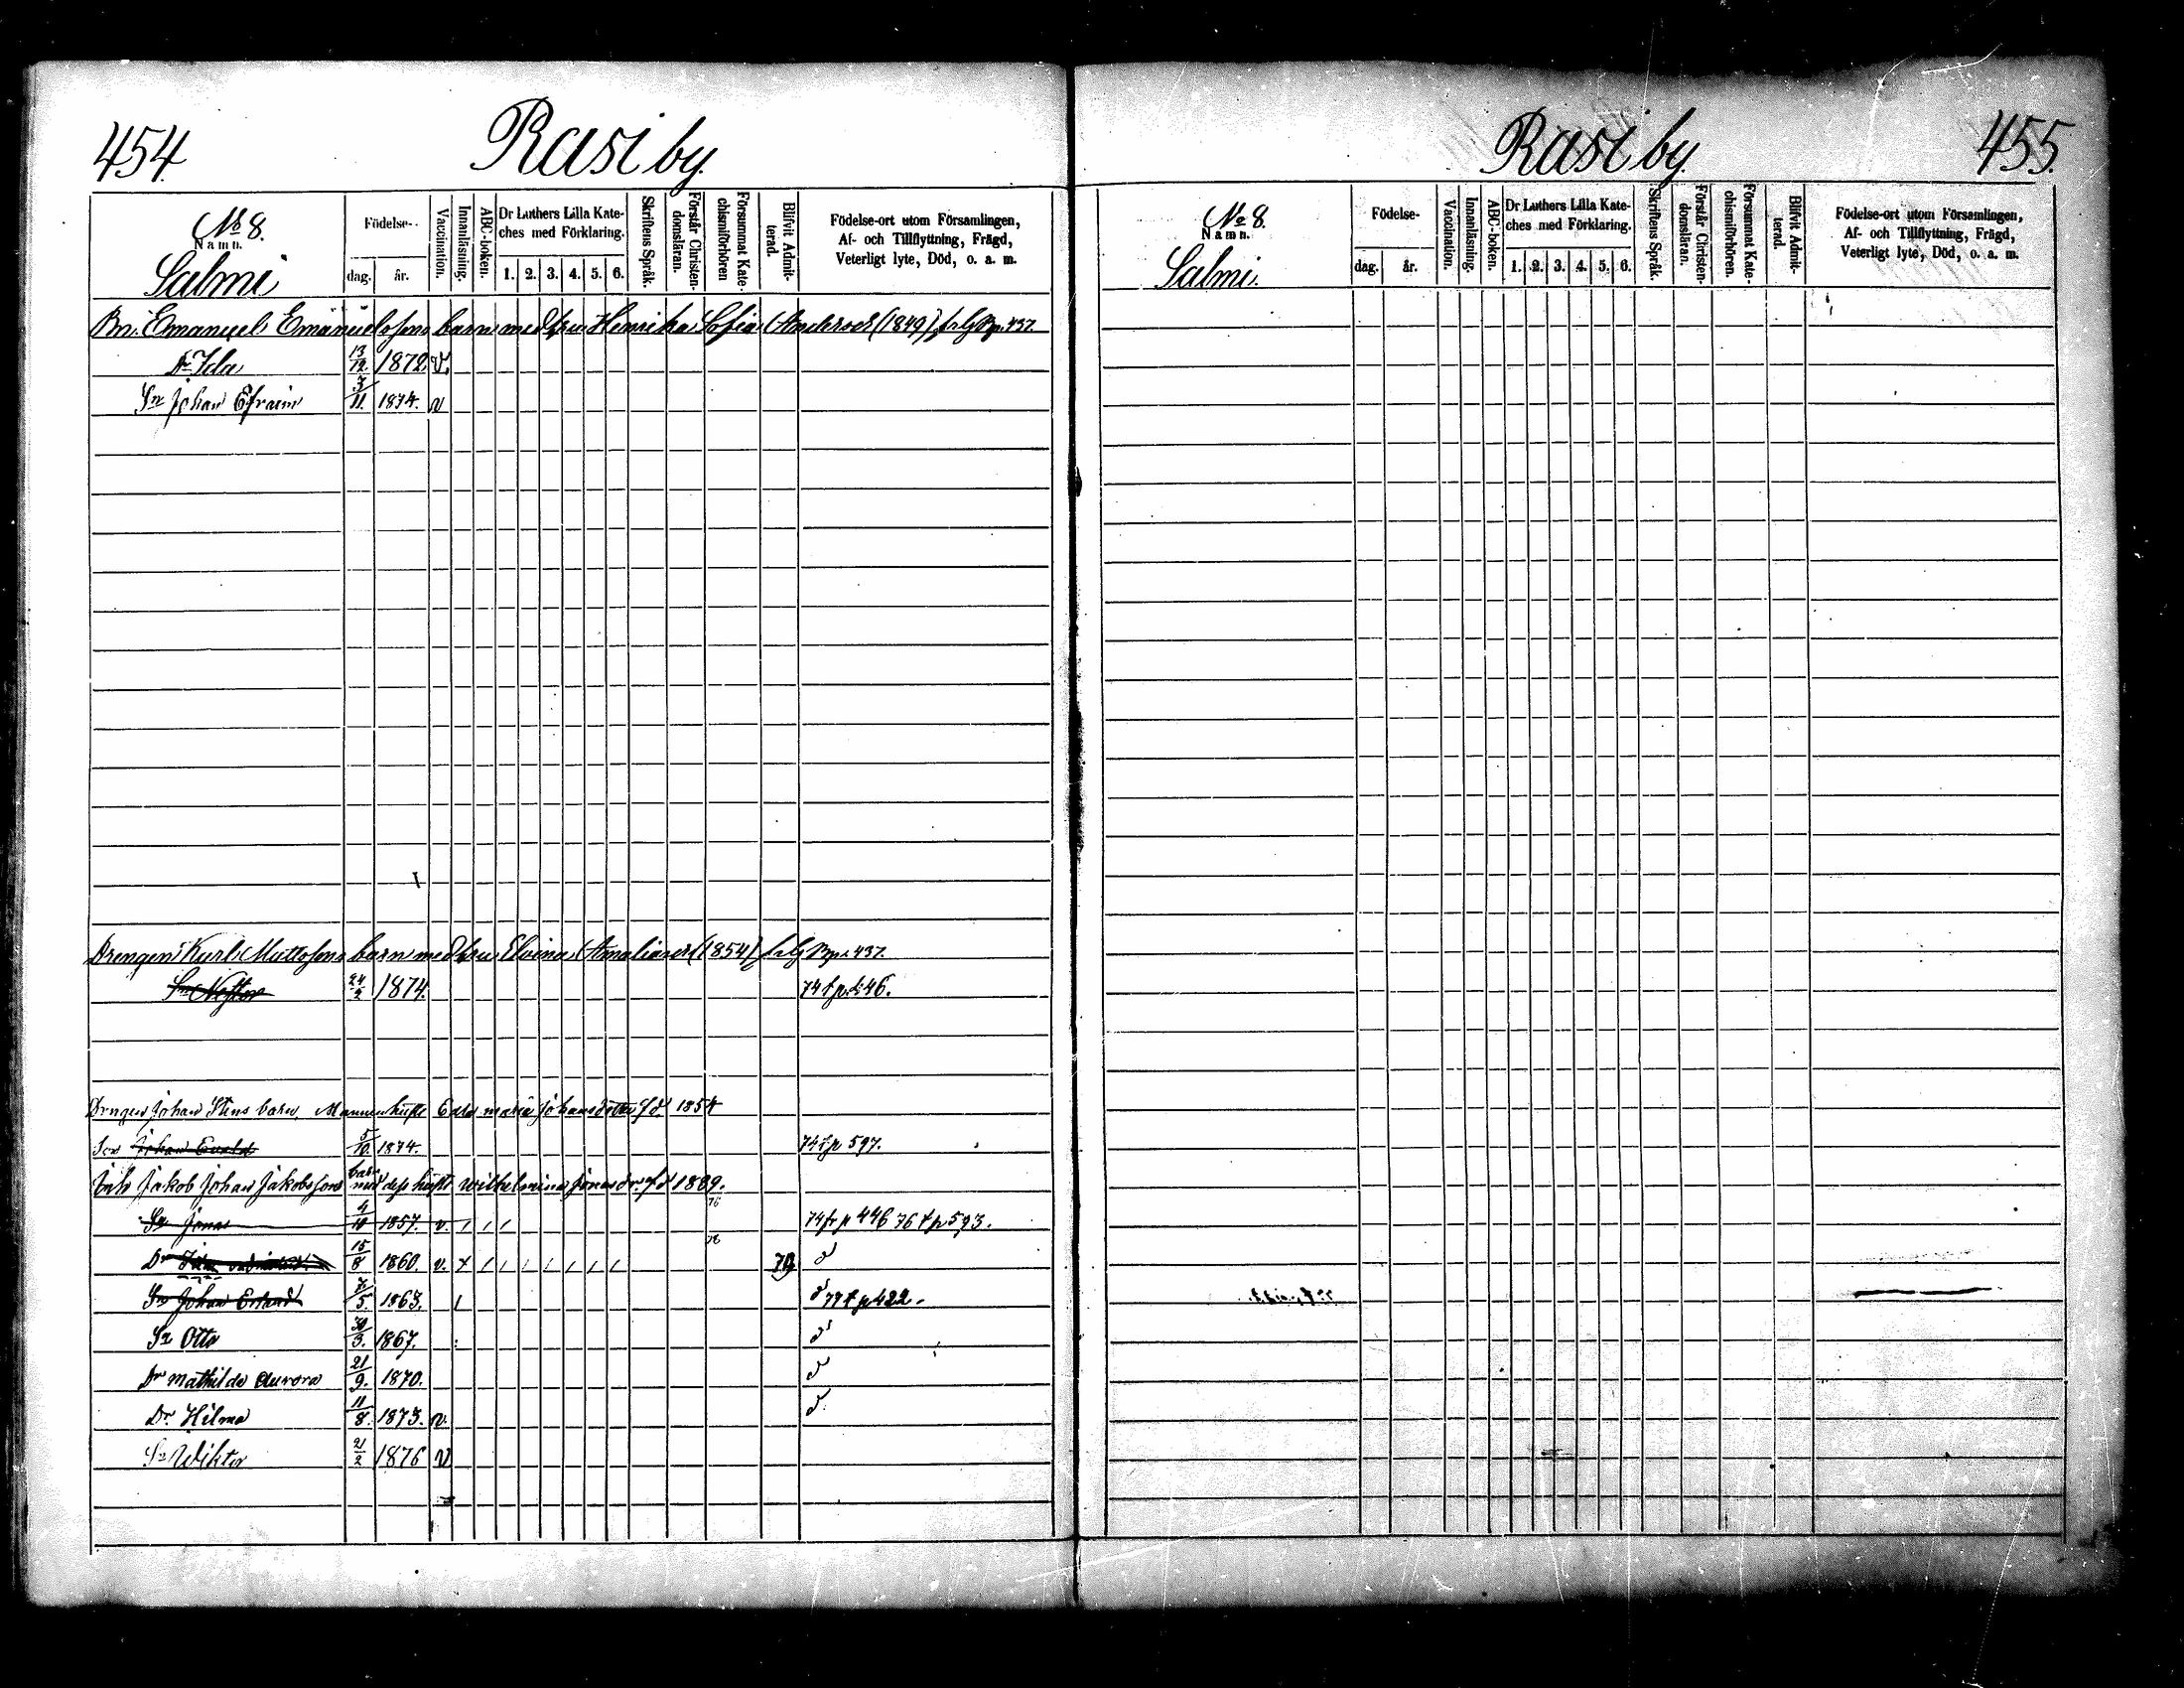 454.
Rasi by.
No 8.
Namn.
Salmi
Födelse-
dag.
år.
Vaccination.
Innanläsning.
ABC-boken.
Dr Luthers Lilla Kate-
ches med Förklaring.
1. 2. 3. 4. 5. 6.
Skriftens Språk.
Förstår Christen-
domsläran.
Försummat Kate-
chismiförhören
Blifvit Admit-
terad.
Födelse-ort utom Församlingen,
Af- och Tillflyttning, Frägd,
Veterligt lyte, Död, o. a. m.
Bn. Emanuel Emanuelssons barn med hru Henrika Sofia Andersdr (1849) 437.
Dr Ida 13/12 1872 v.
Sn Johan Efraim 3/11. 1874. v
Drengen Karl Mattssons barn med hru Elvina Amalia (1854) 437.
Sn Nestor 24/2 1874. 74 t p. 446.
Drengen Johan Stens barn, Mannen hustr Maria Johansdotter f d. 1854
Son Johan Evald 5/10. 1874. 74 t p 597.
Inh Jakob Johan Jakobsson barn med dess hustr Wilhelmina Jonasdr f d 1839.
Sn Jonas 4/10 1857. v. 76 74 fr p 446 76 t p 593.
Dr 15/8 1860. v. 76 79 d
Sn Johan Erland 7/5. 1863. d 77 t p 422.
Sn Otto 30/3. 1867. d
Dr Mathilda Aurora 21/9. 1870. d
Dr Hilma 11/8. 1873. v. d
Sn Wiktor 21/2 1876 v
Rasi by.
455.
No 8.
Namn.
Salmi.
Födelse-
dag.
år.
Vaccination.
Innanläsning.
ABC-boken.
Dr Luthers Lilla Kate-
ches med Förklaring.
1. 2. 3. 4. 5. 6.
Skriftens Språk.
Förstår Christen-
domsläran.
Försummat Kate-
chismiförhören.
Blifvit Admit-
terad.
Födelse-ort utom Församlingen,
Af- och Tillflyttning, Frägd,
Veterligt lyte, Död, o. a. m.